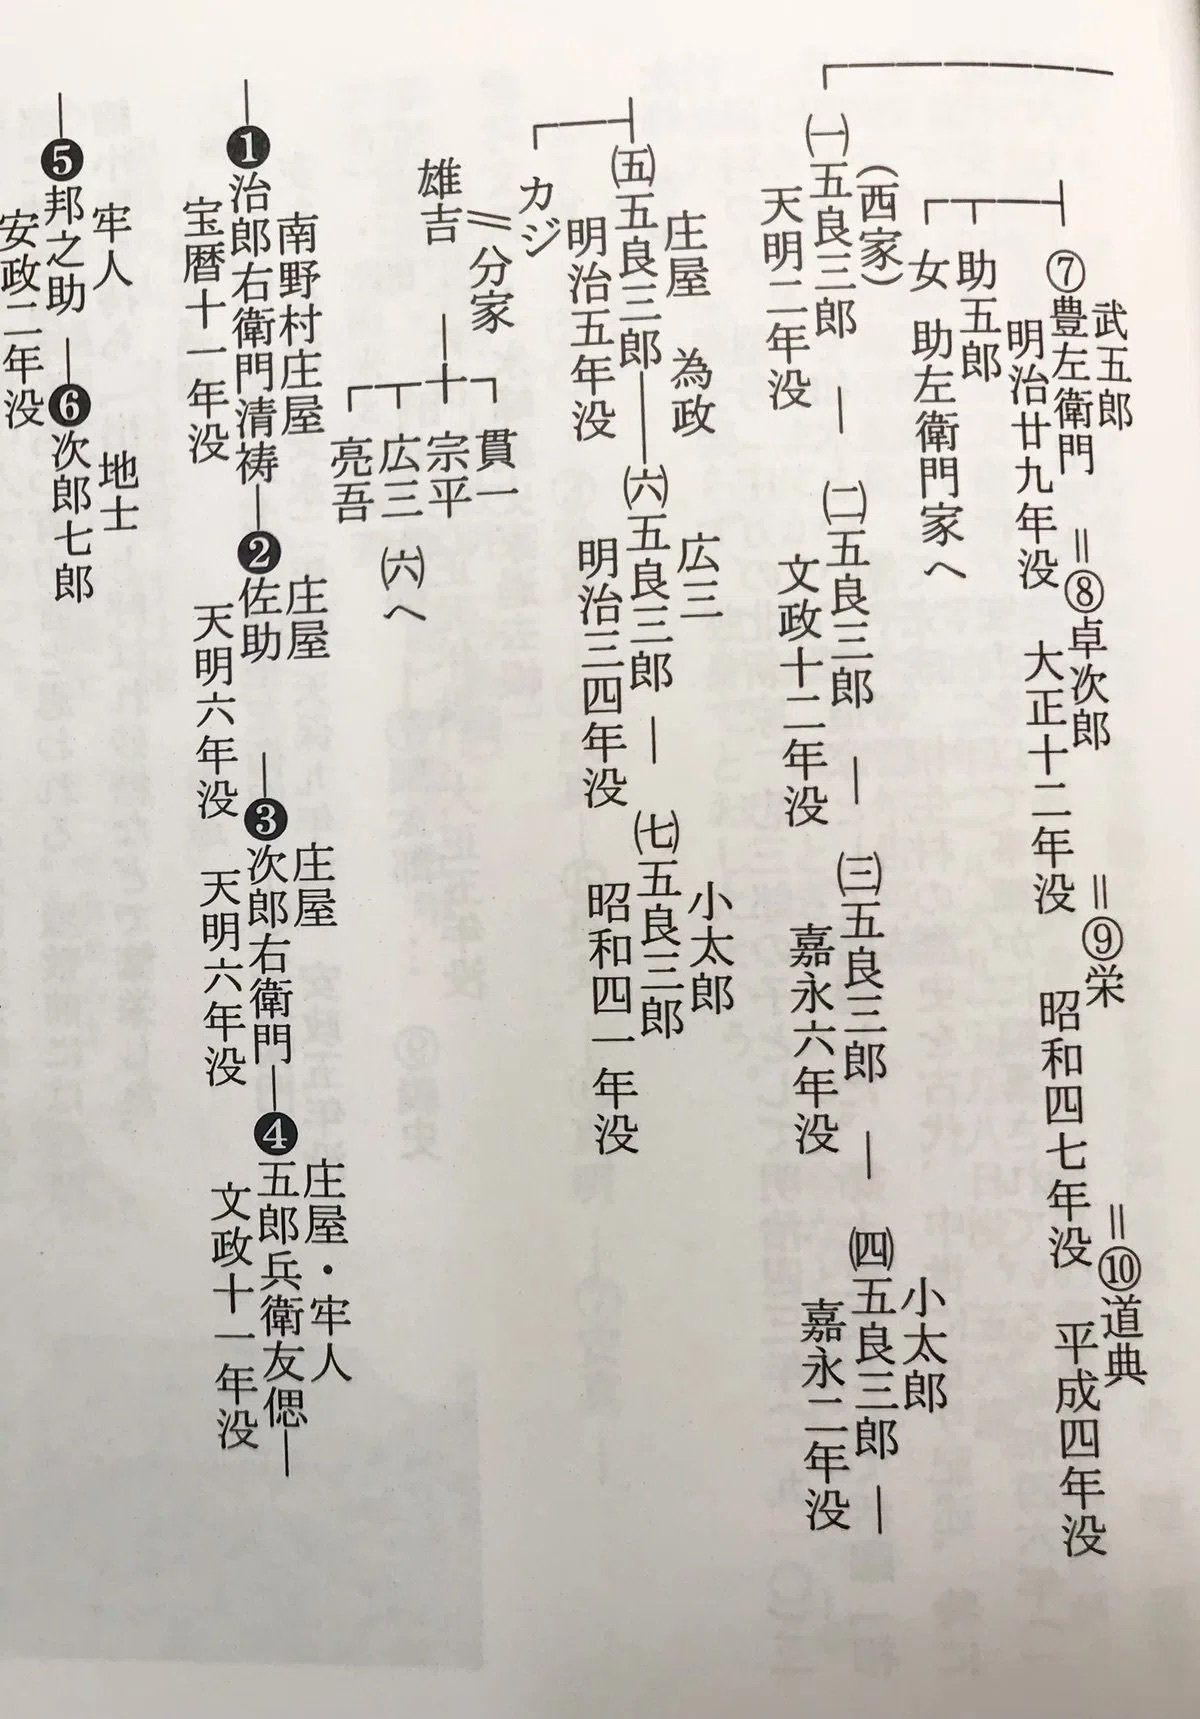 武五郎
⑦豊左衛門 =⑧卓次郎 =⑨栄 =⑩道典
明治廿九年没 大正十二年没 昭和四七年没 平成四年没
助五郎
女 助左衛門家へ
(西家) 小太郎
㈠五良三郎 ― ㈡五良三郎 ― ㈢五良三郎 ― ㈣五良三郎 ―
天明二年没 文政十二年没 嘉永六年没 嘉永二年没
庄屋 為政 広三 小太郎
㈤五良三郎 ― ㈥五良三郎 ― ㈦五良三郎
明治五年没 明治三四年没 昭和四一年没
カジ
=分家
雄吉
貫一
宗平
広三 ㈥へ
亮吾
南野村庄屋 庄屋 庄屋 庄屋・牢人
―❶治郎右衛門清祷―❷佐助 ―❸次郎右衛門―❹五郎兵衛友偲―
宝暦十一年没 天明六年没 天明六年没 文政十一年没
牢人 地士
―❺邦之助 ―❻次郎七郎
安政二年没